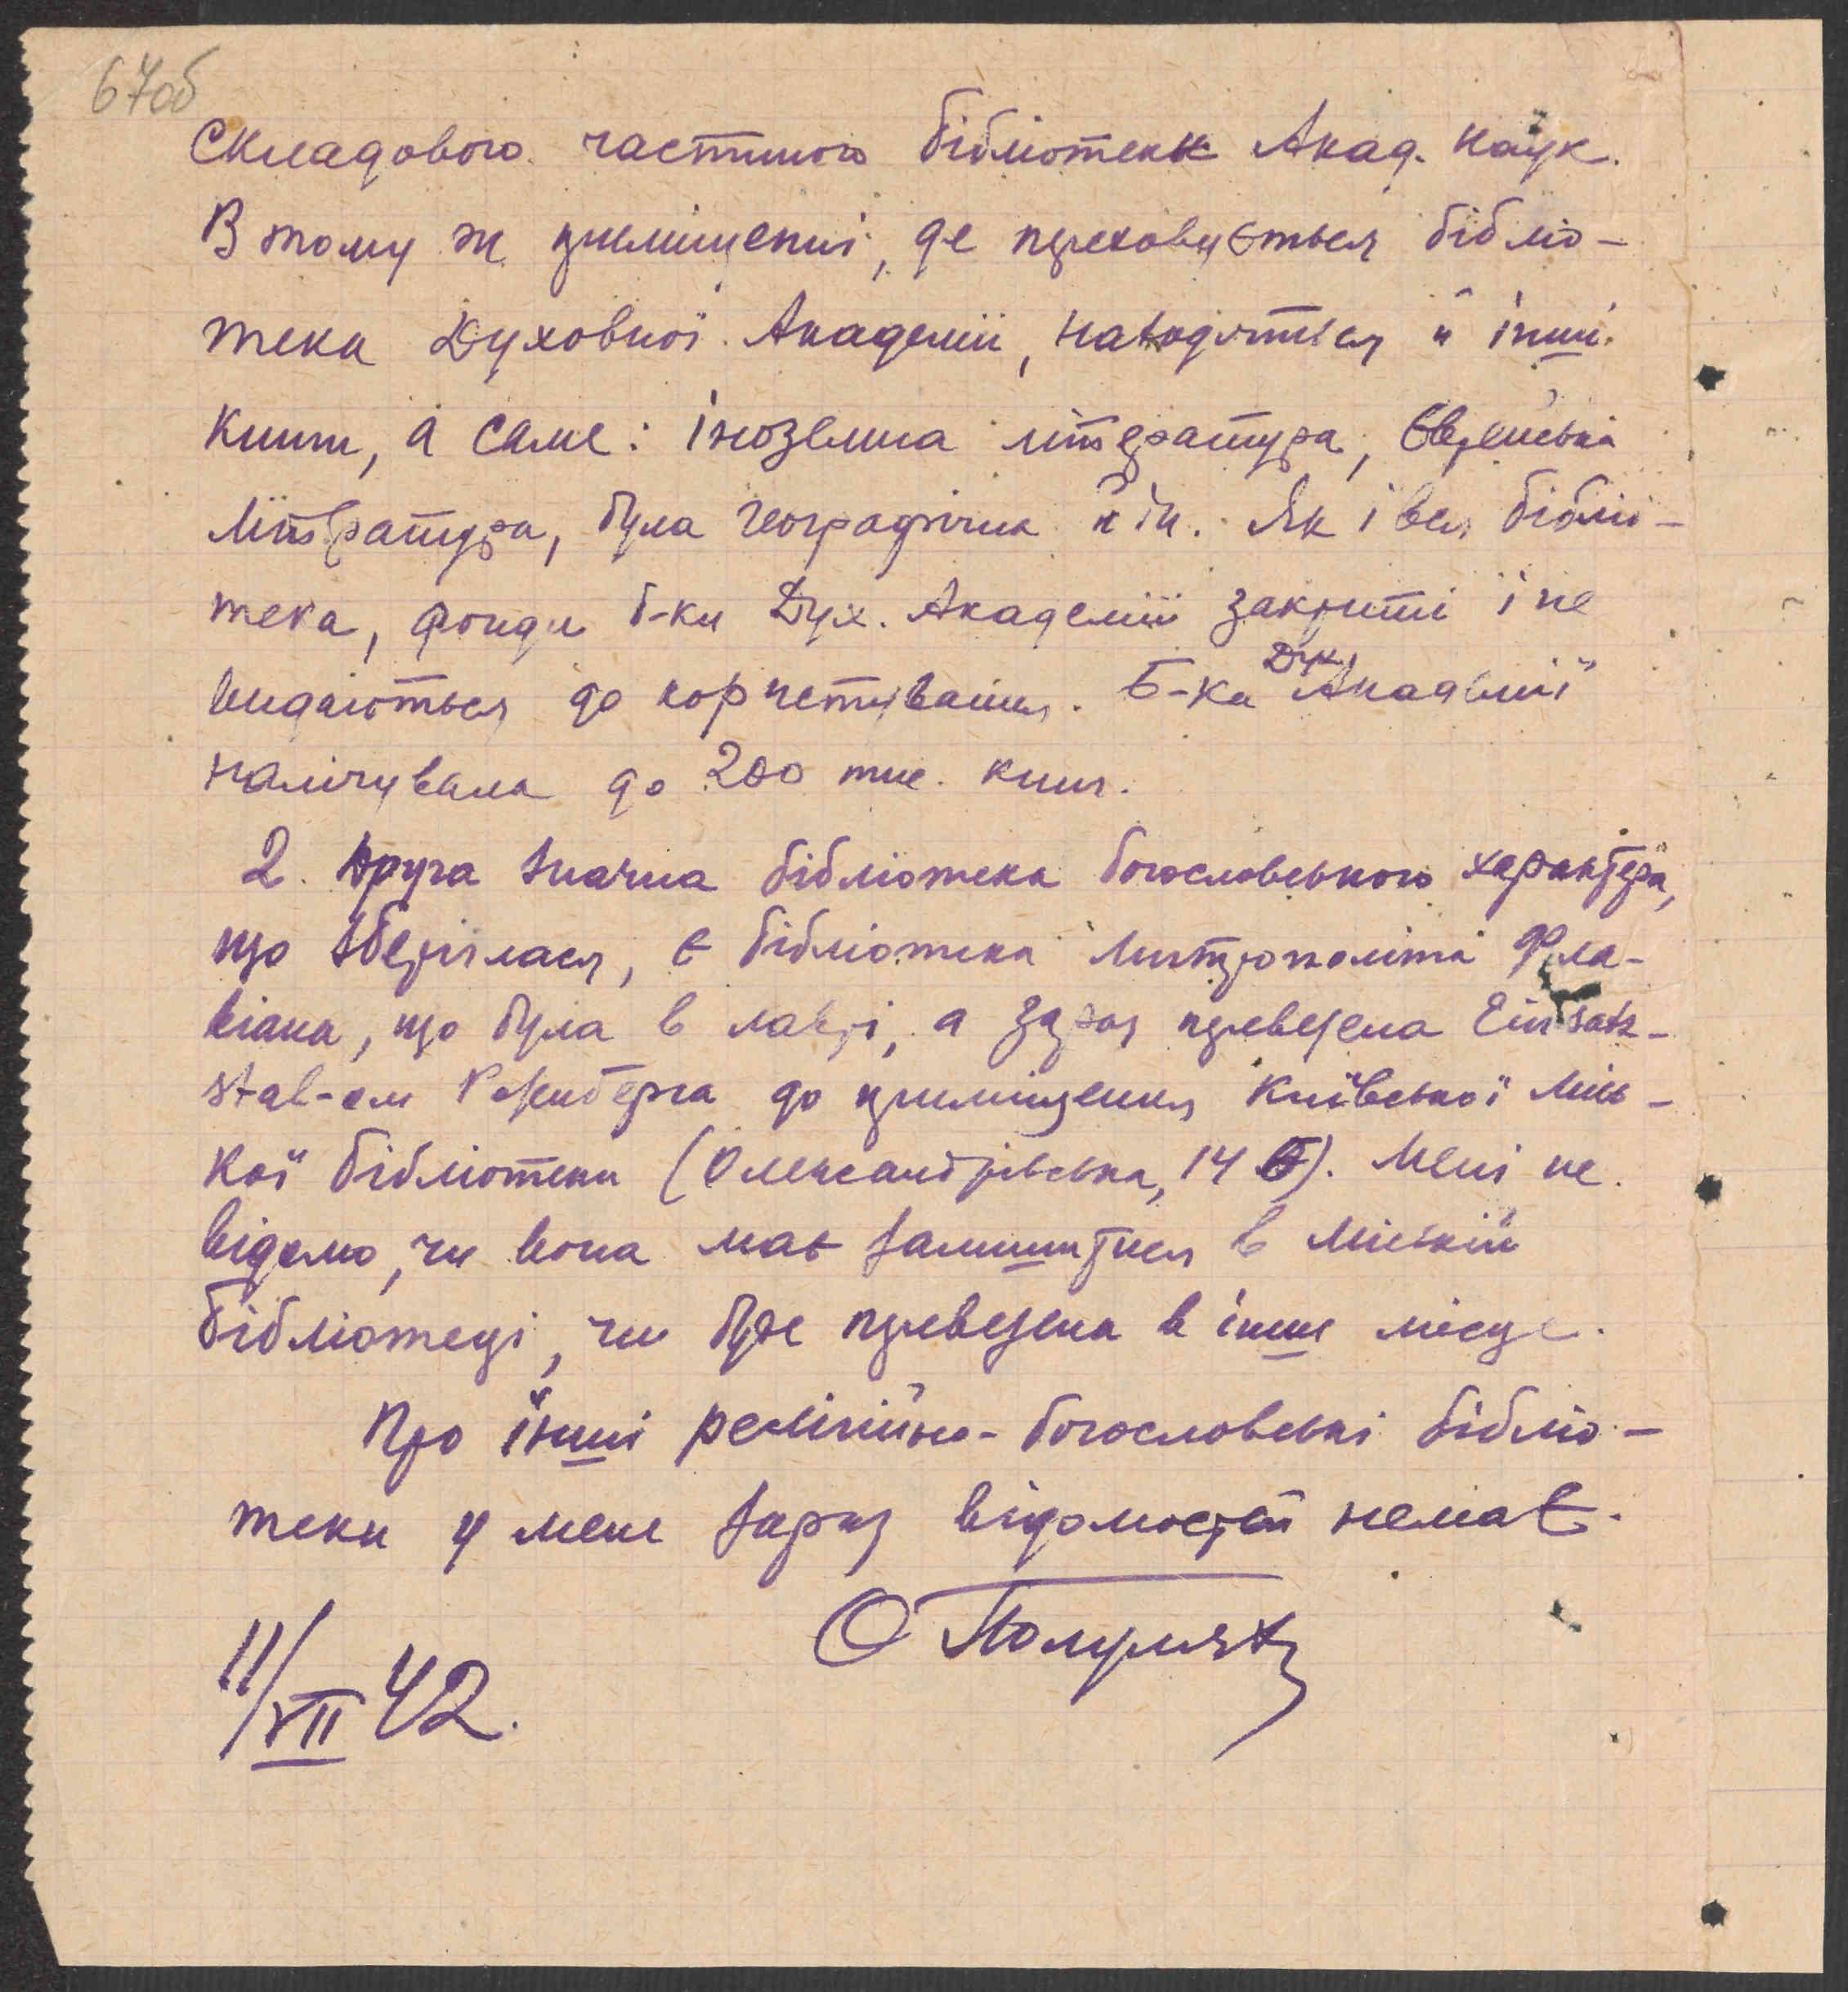 67об
складовою частиною бібліотеки Акад. Наук.
В тому ж приміщенні, де переховується бібліо-
тека Духовної Академії, находяться й інші
книги, а саме: іноземна література, Єврейська
література, була географічна й ін. Як і вся бібліо-
тека, фонди б-ки Дух. Академії закриті і не
видаються до користування. Б-ка Дух. Академії
налічувала до 200 тис. книг.
2. Друга значна бібліотека богословського характера,
що збереглася, є бібліотека митрополіта Фла-
віана, що була в лаврі, а зараз перевезена Einsatz-
stab-ом Розенберга до приміщення Київської місь-
кої бібліотеки (Олександрівська, 14 б). Мені не
відомо, чи вона має залишитися в міській
бібліотеці, чи буде перевезена в інше місце.
Про інші релігійно-богословські бібліо-
теки у мене зараз відомостей немає.
11/VII 42.